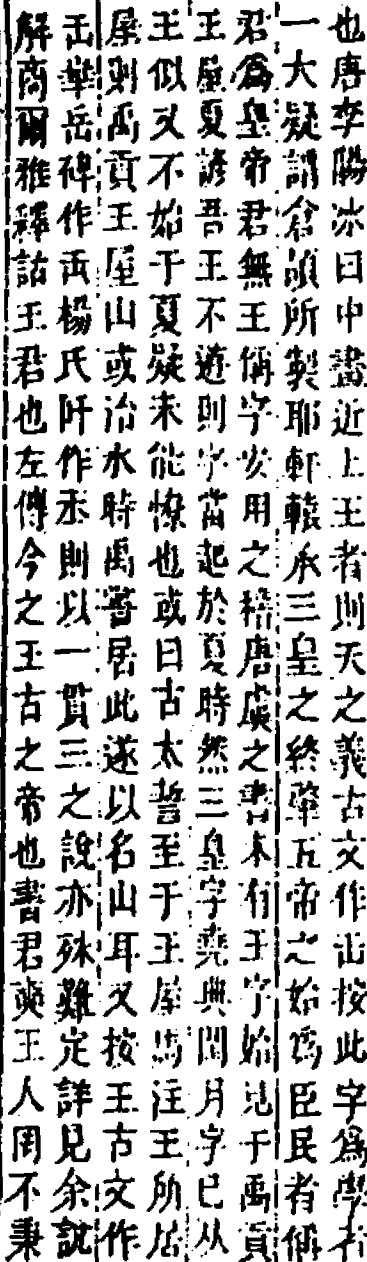 也唐李陽冰曰中畫近上王者則天之義古文作击按此字爲學者
一大疑謂倉頡所製耶軒轅承三皇之終肇五帝之始爲臣民者偁
君爲皇帝君無王偁字安用之稽唐虞之書本有王字始見于禹貢
王屋夏諺吾王不遊則字當起於夏時然三皇字堯典閏月字已从
王似又不始于夏疑未能憭也或曰古太誓至于王屋馬注王所居
屋則禹貢王屋山或治水時禹嘗居此遂以名山耳又按王古文作
击華岳碑作 楊氏阡作 則以一貫三之說亦殊難定詳見余說
解商爾雅釋詁王君也左傳今之王古之帝也書君奭王人罔不秉